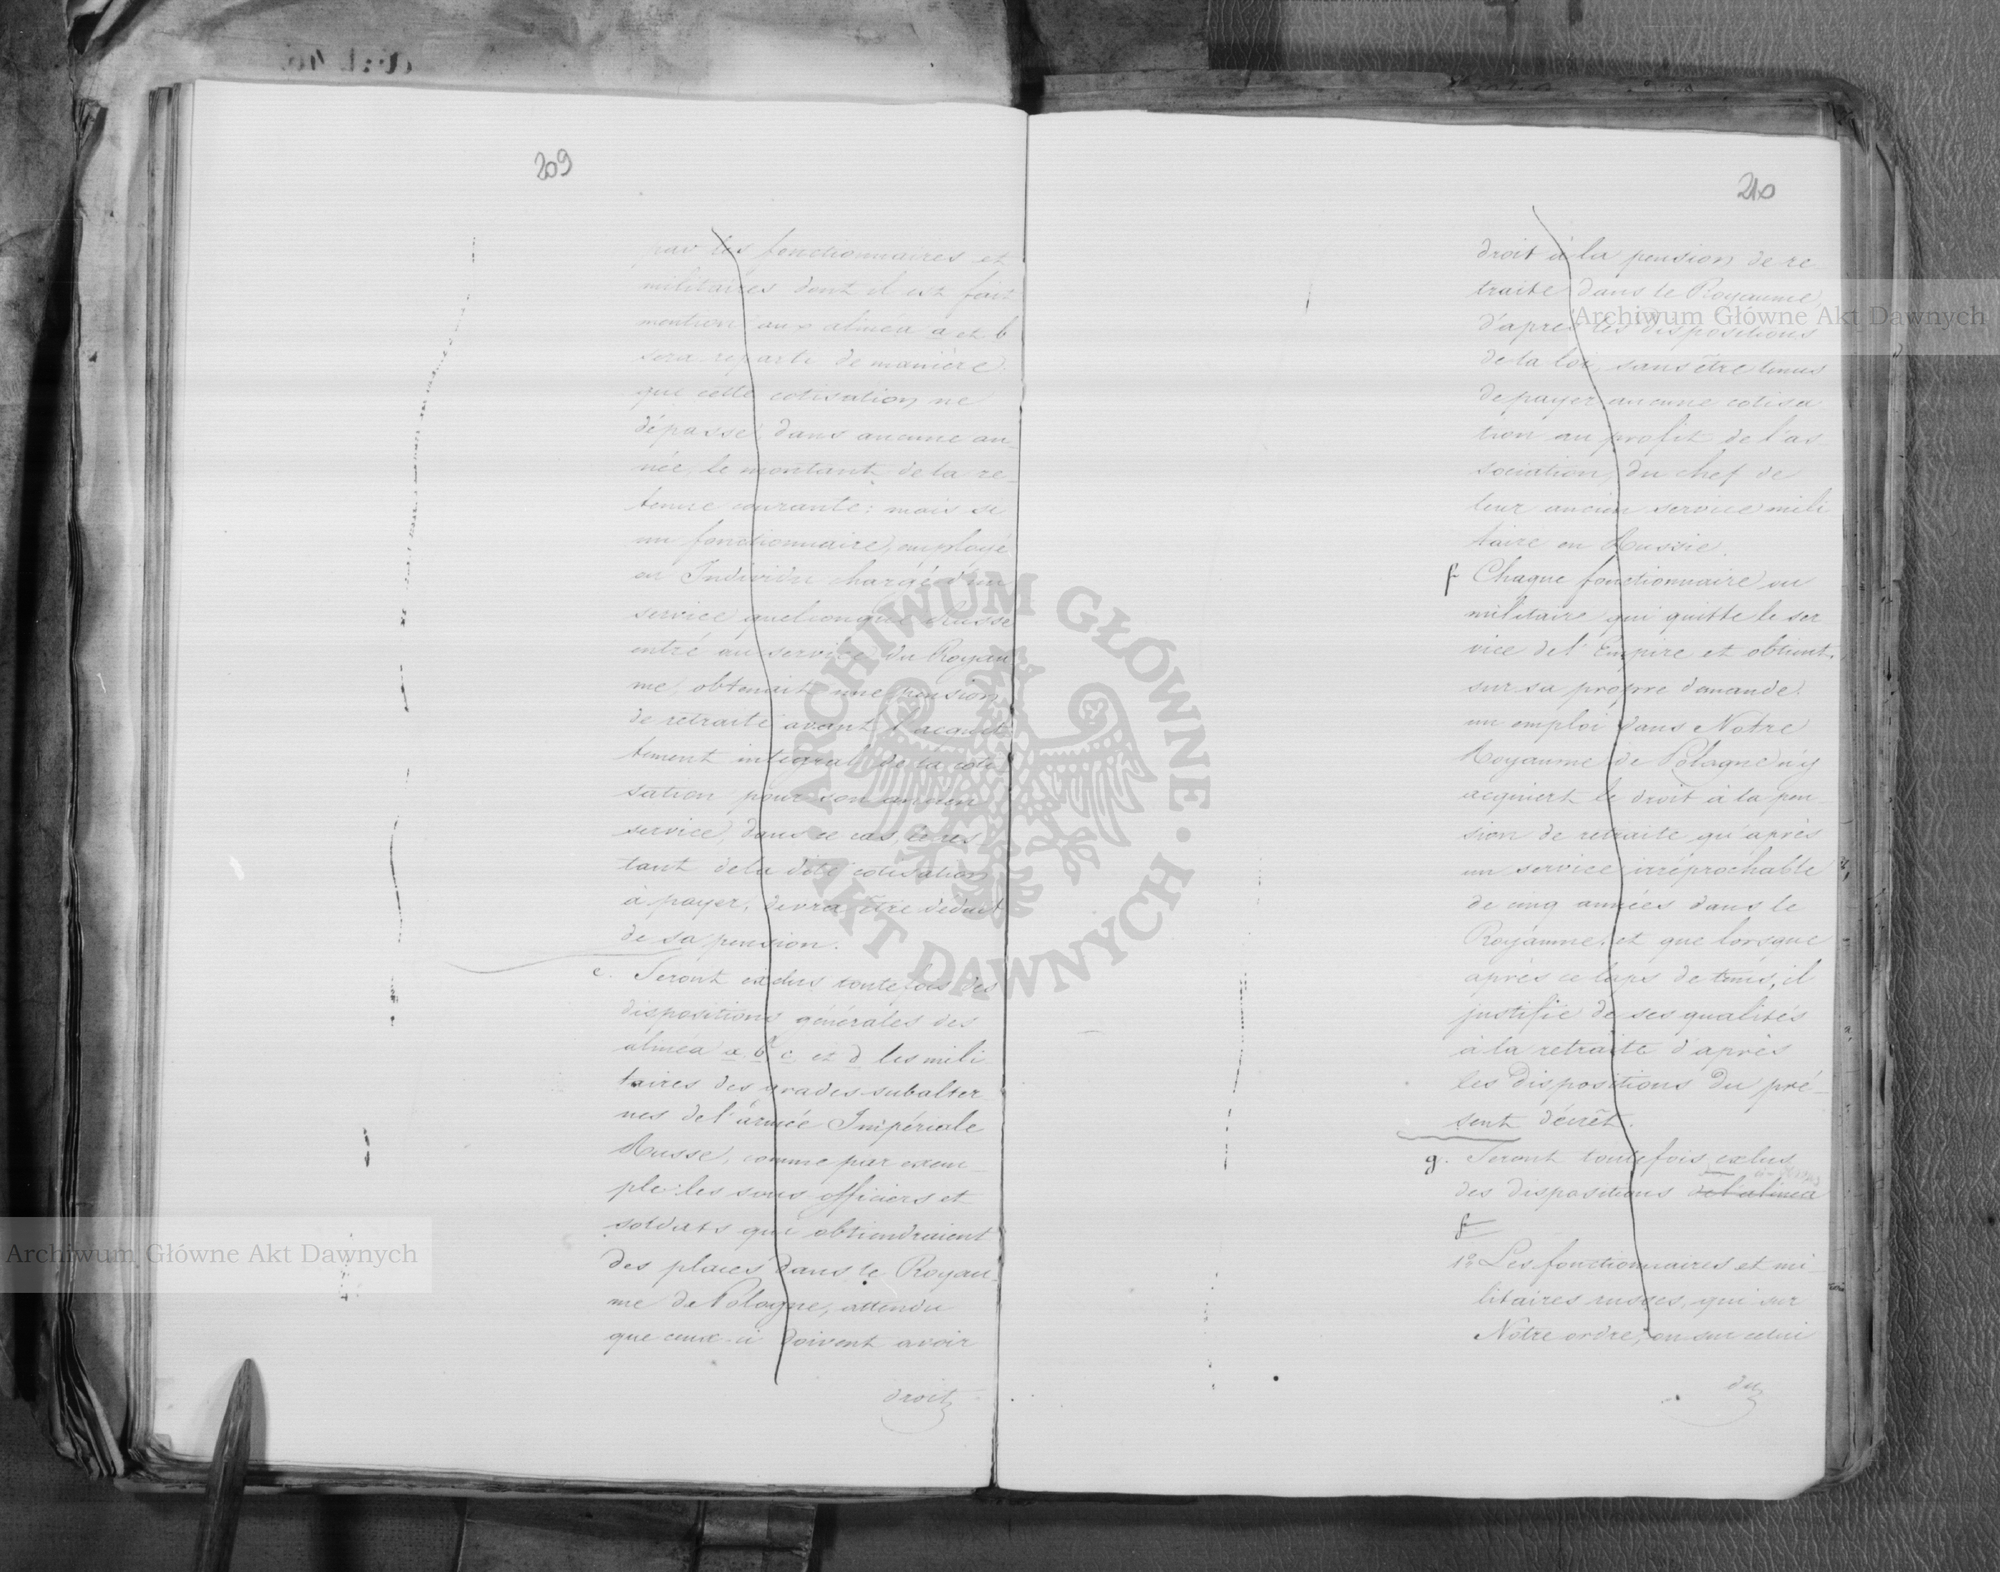 209
par les fonctionnaires et
militaires dont il est fait
mention aux alinéa a et b
sera reparti de manière
que cette cotisation ne
dépasse, dans aucune an-
née, le montant de la re-
tenue courante: mais si
un fonctionnaire, employé
ou Individu chargé d'un
service quelconque Russe
entré au service du Royau
me, obtenait une pension
de retraite avant l'acquit
tement intégral de la coti
sation pour son ancien
service, dans ce cas, le res
tant de la dite cotisation
à payer, devra être déduit
de sa pension.
e. Seront exclus toutefois des
dispositions générales des
alinéa a. b. c. et d les mili
taires des grades subalter
nes de l'armée Impériale
Russe, comme par exem-
ple: les sous officiers et
soldats qui obtiendraient
des places dans le Royau-
me de Pologne, attendu
que ceux-ci doivent avoir
droit
210
droit à la pension de re
traite dans le Royaume
d'après les dispositions
de la loi, sans être tenus
de payer aucune cotisa
tion au profit de l'as
sociation, du chef de
leur ancien service mili
taire en Russie.
f Chaque fonctionnaire ou
militaire qui quitte le ser
vice de l'Empire et obtient,
sur sa propre demande,
un emploi dans Notre
Royaume de Pologne n'y
acquiert le droit à la pen
sion de retraite qu'après
un service irréprochable
de cinq années dans le
Royaume, et que lorsque
après ce laps de tems, il
justifie de ses qualités
à la retraite d'après
les dispositions du pré-
sent décret.
g. Seront toutefois exlus
des dispositions de l'alinéa
f
1º Les fonctionnaires et mi-
litaires russes, qui sur
Notre ordre, ou sur celui
du
Archiwum Główne Akt Dawnych
Archiwum Główne Akt Dawnych
ARCHIWUM GŁÓWNE • AKT DAWNYCH •